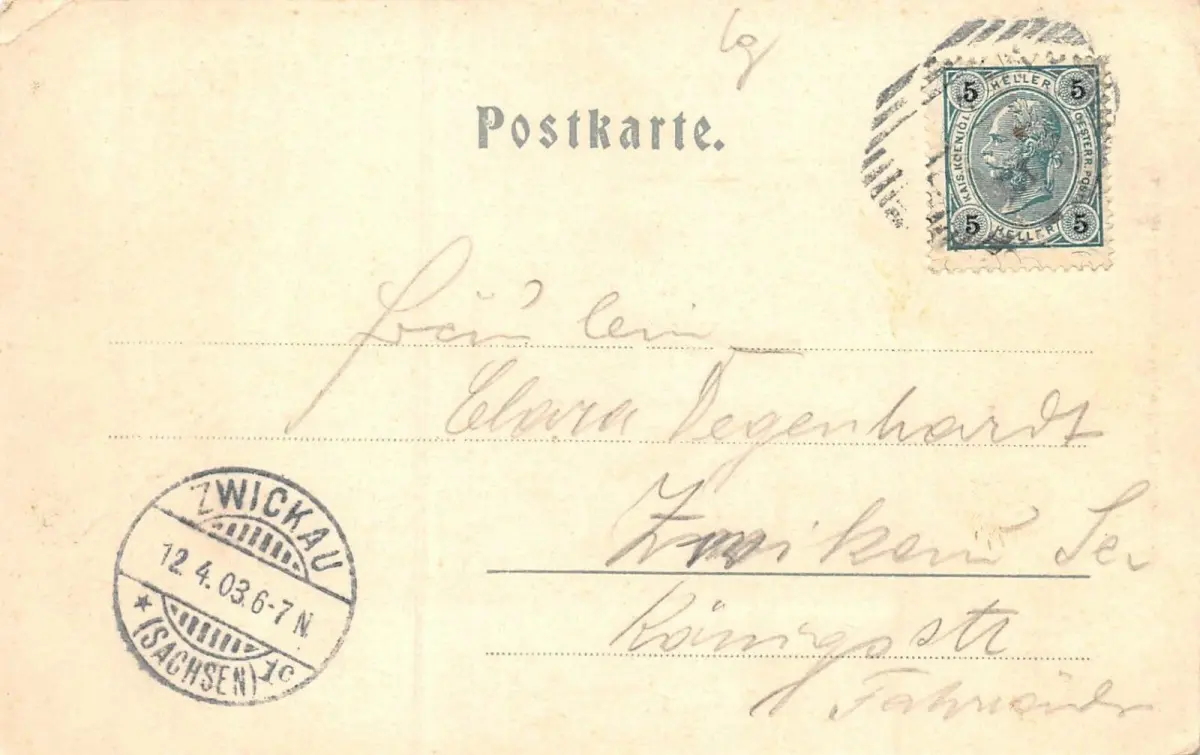 lg
Postkarte.
5 HELLER 5
KAIS. KOENIGL. OESTERR. POST
5 HELLER 5
Fräulein
Clara Degenhardt
Zwikau
Königsstr
ZWICKAU
12.4.03.6-7N.
* (SACHSEN) 1c